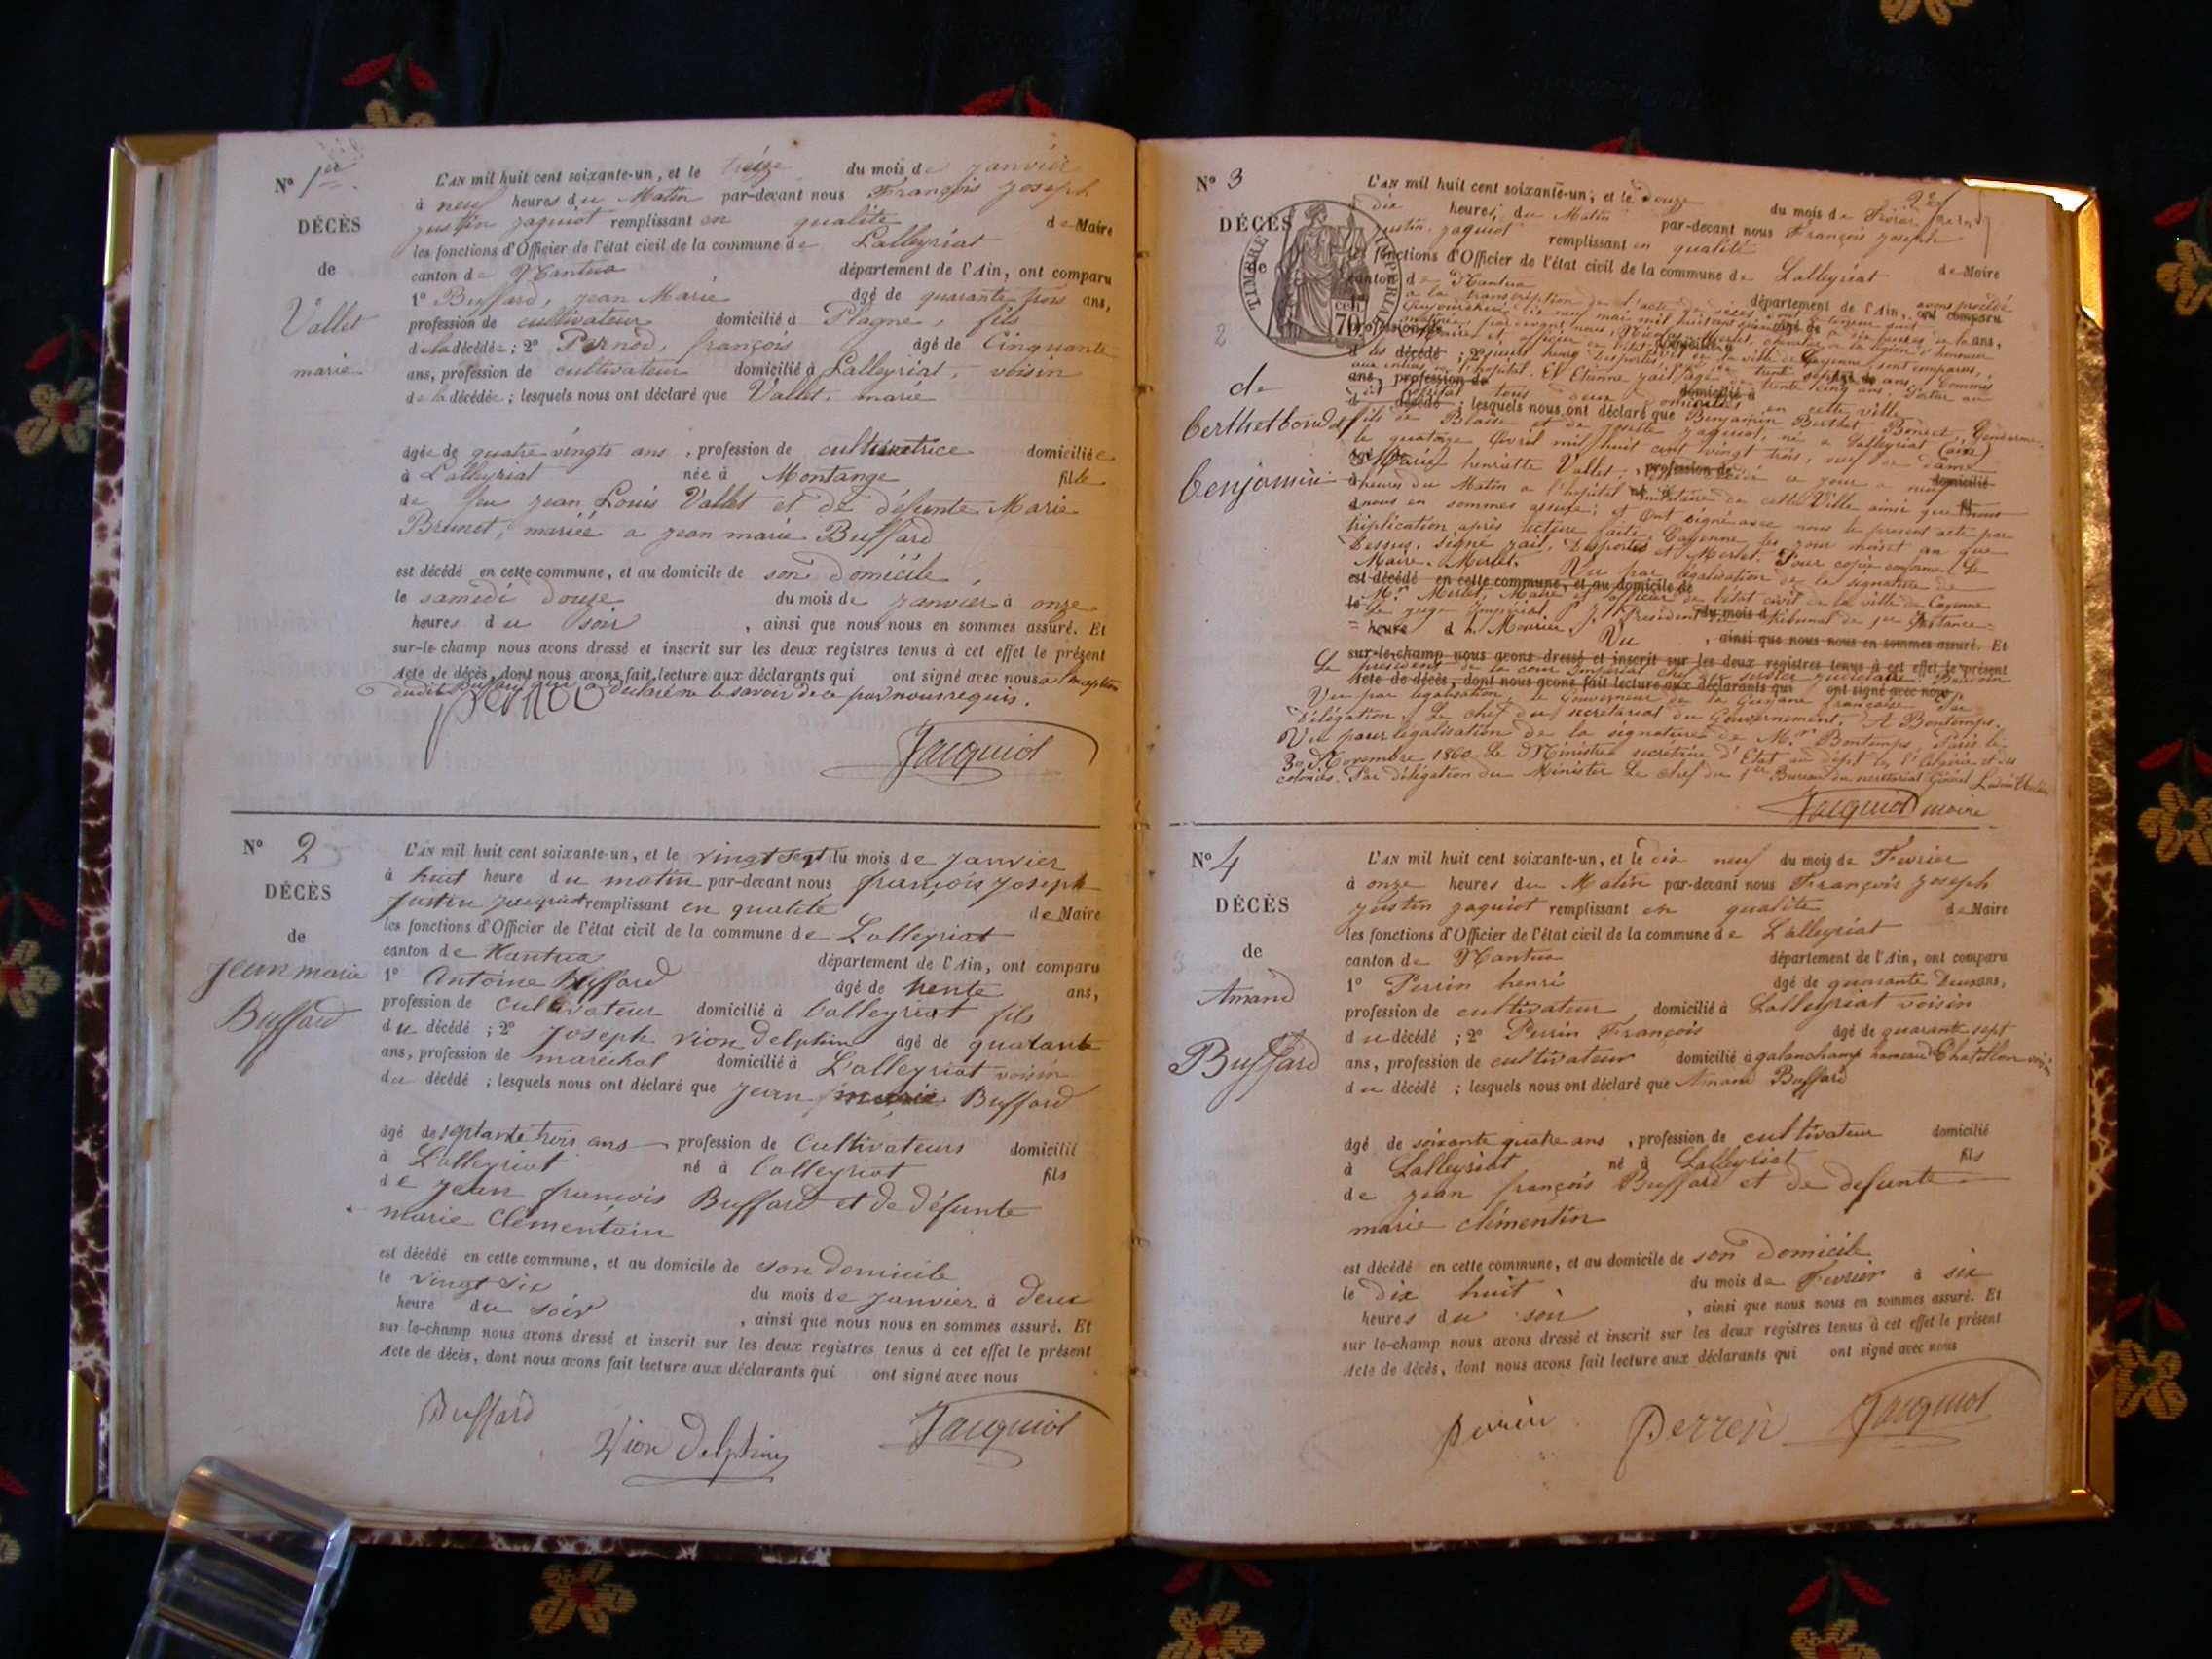 N° 1er
DÉCÈS
de
Vallet
marie
L'AN mil huit cent soixante-un, et le treize du mois de janvier
à neuf heures du Matin par-devant nous François joseph
justin jaquiot remplissant en qualité de Maire
les fonctions d'Officier de l'état civil de la commune de Lalleyriat
canton de Nantua département de l'Ain, ont comparu
1° Buffard, jean Marie âgé de quarante trois ans,
profession de cultivateur domicilié à Plagne, fils
de la décédée; 2° Pernod, françois âgé de Cinquante
ans, profession de cultivateur domicilié à Lalleyriat, voisin
de la décédée; lesquels nous ont déclaré que Vallet, marie
âgée de quatre vingts ans, profession de cultivatrice domiciliée
à Lalleyriat née à Montange fille
de feu jean Louis Vallet et de défunte Marie
Brunet, mariée a jean marie Buffard
est décédé en cette commune, et au domicile de son Domicile,
le samedi douze du mois de janvier à onze
heures du soir, ainsi que nous nous en sommes assuré. Et
sur-le-champ nous avons dressé et inscrit sur les deux registres tenus à cet effet le présent
Acte de décès, dont nous avons fait lecture aux déclarants qui ont signé avec nous a l'exception
dudit Buffard qui a déclaré ne le savoir de ce par nous requis.
Pernod
Jacquiot
N° 2
DÉCÈS
de
jean marie
Buffard
L'AN mil huit cent soixante-un, et le vingt sept du mois de janvier
à huit heure du matin par-devant nous françois joseph
justin jacquiot remplissant en qualité de Maire
les fonctions d'Officier de l'état civil de la commune de Lalleyriat
canton de Nantua département de l'Ain, ont comparu
1° Antoine Buffard âgé de trente ans,
profession de cultivateur domicilié à lalleyriat fils
du décédé; 2° joseph vion Delphin âgé de quarante
ans, profession de maréchal domicilié à L'alleyriat voisin
du décédé; lesquels nous ont déclaré que jean marie Buffard
âgé de septante trois ans profession de Cultivateurs domicilié
à L'alleyriat né à lalleyriat fils
de jean francois Buffard et de défunte
marie Clémentain
est décédé en cette commune, et au domicile de son domicile
le vingt six du mois de janvier à deux
heure du soir, ainsi que nous nous en sommes assuré. Et
sur le-champ nous avons dressé et inscrit sur les deux registres tenus à cet effet le présent
Acte de décès, dont nous avons fait lecture aux déclarants qui ont signé avec nous
Buffard
Vion Delphin
Jacquiot
N° 3
DÉCÈS
de
TIMBRE IMPERIAL
70
2
de
berthet bonndet
benjamin
L'AN mil huit cent soixante-un, et le Douze du mois de Fevrier
dix heures du Matin par-devant nous François joseph
justin jaquiot remplissant en qualité de Maire
les fonctions d'Officier de l'état civil de la commune de Lalleyriat
canton de Nantua département de l'Ain, ont comparu avons procédé
a la transcription de l'acte de décès
mil huit cent
profession de
chevalier de la légion d'honneur
de la ville de Cayenne sont comparus,
l'hopital. Et Etienne jail âgé de trente cinq ans,
décédé; lesquels nous ont déclaré que Benjamin Berthet Bondet, Gendarme
fils de Blaise et de josette jaquiot, né a Lalleyriat (ain)
le quatorze Avril mil huit cent vingt trois, veuf de dame
Marie henriette Vallet, profession de
heures du Matin a l'hopital militaire de cette Ville ainsi que nous
nous en sommes assuré; et ont signé avec nous le present acte par
triplication après lecture faite, Cayenne les jour mois et an que
Dessus. signé jail, Desportes et Merlet. Pour copie conforme Le
Maire. Merlet. Vu par légalisation de la signature de
est décédé en cette commune, et au domicile de
Mr Merlet, Maire et officier de l'état civil de la ville de Cayenne
Le juge Imperial, Président du Tribunal de 1ere Instance
heure du mois d
h. Mourier. Vu, ainsi que nous nous en sommes assuré. Et
sur-le-champ nous avons dressé et inscrit sur les deux registres tenus à cet effet le présent
Le président de la cour Imperiale chef du service judiciaire. Baudoin
Acte de décès, dont nous avons fait lecture aux déclarants qui ont signé avec nous
Vu par legalisation, le Gouverneur de la Guyane française Par
Délégation, Le chef du secretariat du Gouvernement. A Bontemps.
Vu pour legalisation de la signature de Mr Bontemps, Paris le
30 Novembre 1860. Le Ministre secretaire d'Etat au Dépt de l'Algérie et des
colonies. Par délégation du Ministre Le chef du 1er Bureau du secretariat Général
Jacquiot maire
N° 4
DÉCÈS
de
Amand
Buffard
L'AN mil huit cent soixante-un, et le dix neuf du mois de Fevrier
à onze heures du Matin par-devant nous François joseph
justin jaquiot remplissant en qualité de Maire
les fonctions d'Officier de l'état civil de la commune de Lalleyriat
canton de Nantua département de l'Ain, ont comparu
1° Perrin henri âgé de quarante Deux ans,
profession de cultivateur domicilié à Lalleyriat voisin
du décédé; 2° Perrin François âgé de quarante sept
ans, profession de cultivateur domicilié à galanchamp hameau de Chatillon voisin
du décédé; lesquels nous ont déclaré que Amand Buffard
âgé de soixante quatre ans, profession de cultivateur domicilié
à Lalleyriat né à Lalleyriat fils
de jean françois Buffard et de defunte
marie clémentin
est décédé en cette commune, et au domicile de son Domicile
le Dix huit du mois de Fevrier à six
heures du soir, ainsi que nous nous en sommes assuré. Et
sur le-champ nous avons dressé et inscrit sur les deux registres tenus à cet effet le présent
Acte de décès, dont nous avons fait lecture aux déclarants qui ont signé avec nous
Perrin
Perrein
Jacquiot